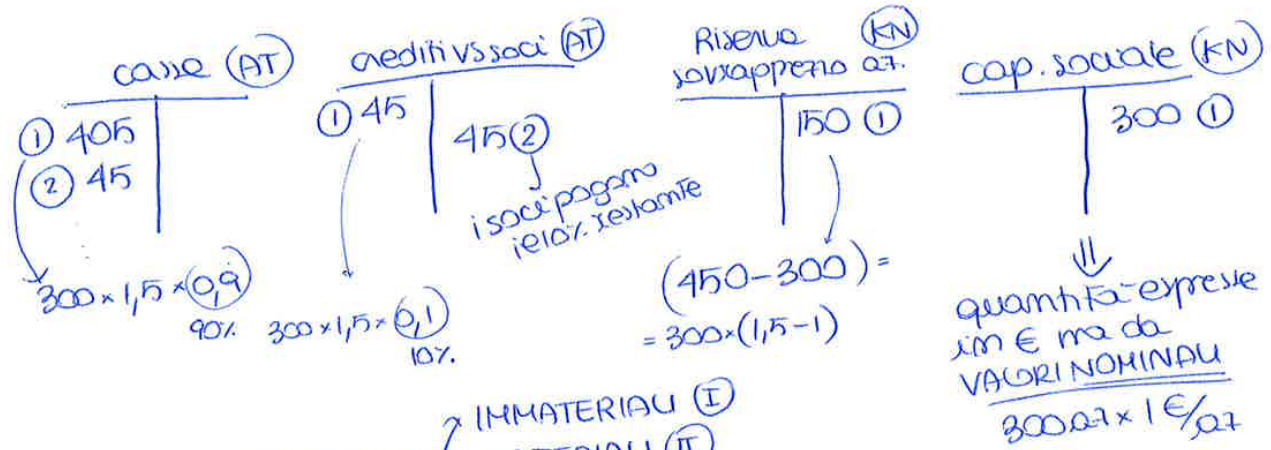 casse (AT)
① 405
② 45
300 × 1,5 × 0,9
90%
crediti vs soci (AT)
① 45
45 ②
i soci pagano
il 10% restante
300 × 1,5 × 0,1
10%
Riserva (KN)
sovrapprezzo az.
150 ①
(450-300) =
= 300×(1,5-1)
cap. sociale (KN)
300 ①
⇓
quantità espresse
in € ma da
VALORI NOMINALI
300 az × 1 €/az
↗ IMMATERIALI (I)